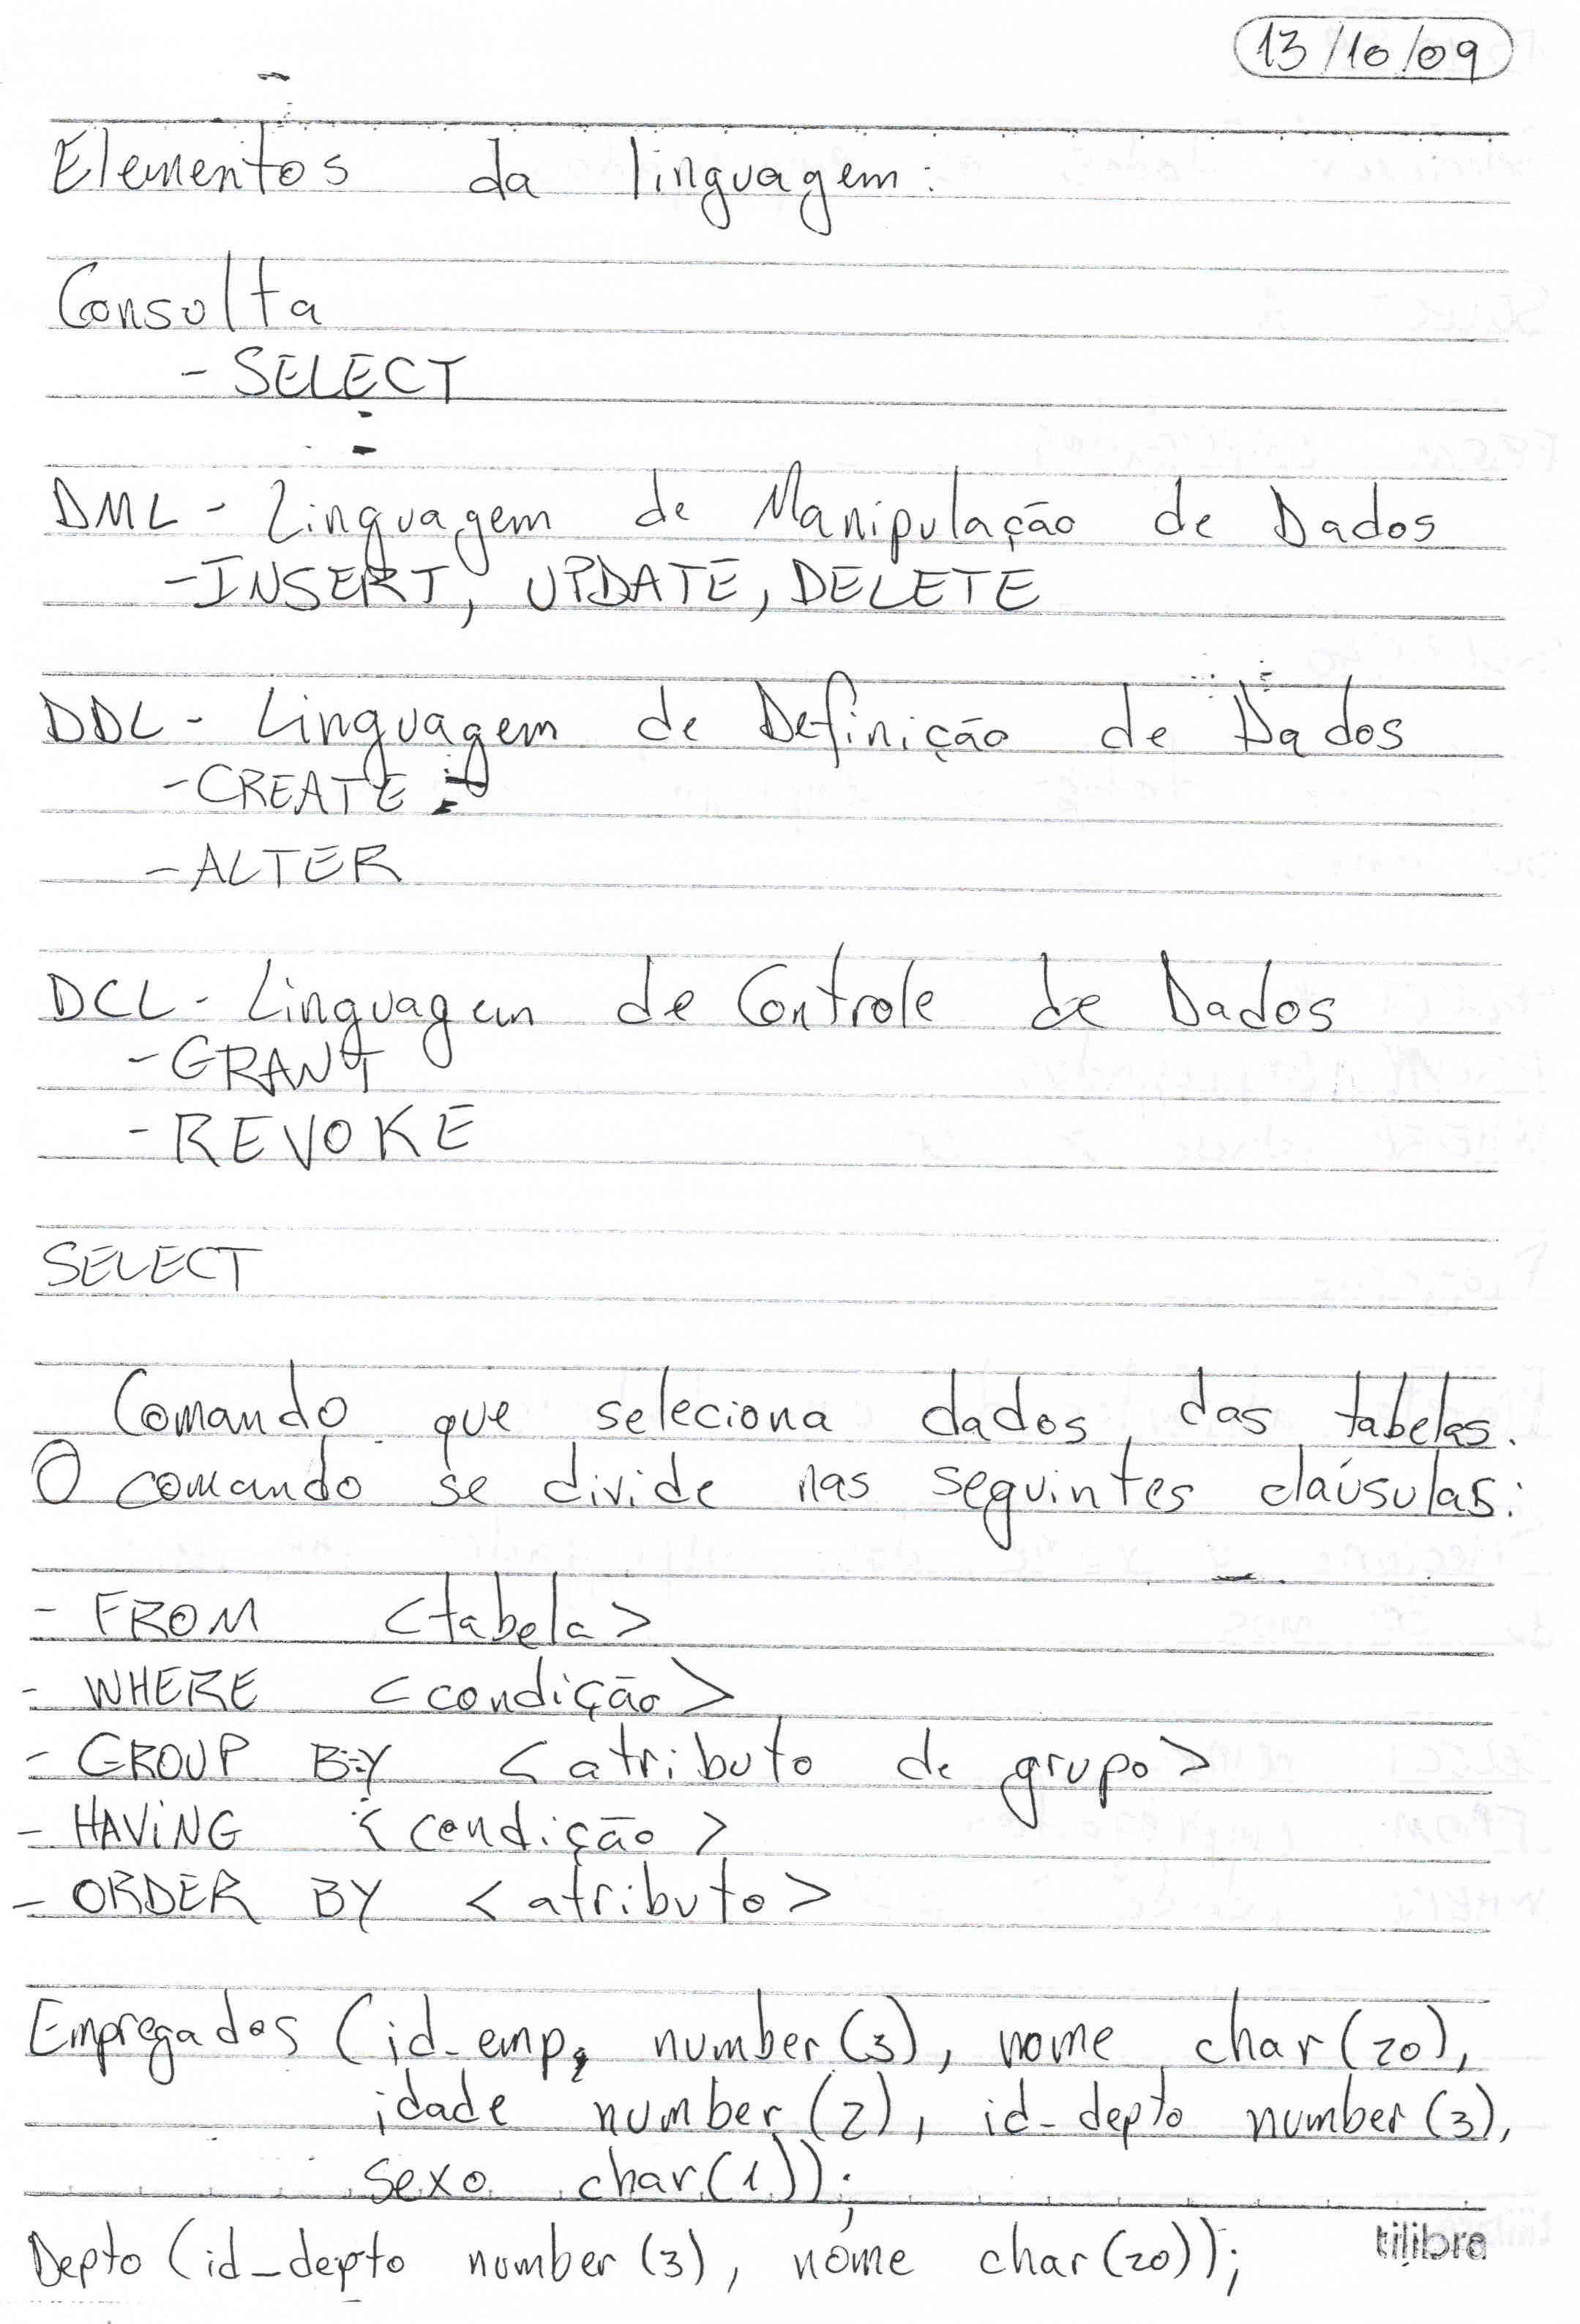 13/10/09
Elementos da linguagem:
Consulta
- SELECT
DML - Linguagem de Manipulação de Dados
- INSERT, UPDATE, DELETE
DDL - Linguagem de Definição de Dados
- CREATE
- ALTER
DCL - Linguagem de Controle de Dados
- GRANT
- REVOKE
SELECT
Comando que seleciona dados das tabelas.
O comando se divide nas seguintes claúsulas:
- FROM <tabela>
- WHERE <condição>
- GROUP BY <atributo de grupo>
- HAVING <condição>
- ORDER BY <atributo>
Empregados (id_emp, number(3), nome char(20),
idade number(2), id-depto number(3),
sexo char(1));
Depto (id_depto number(3), nome char(20));
tilibra